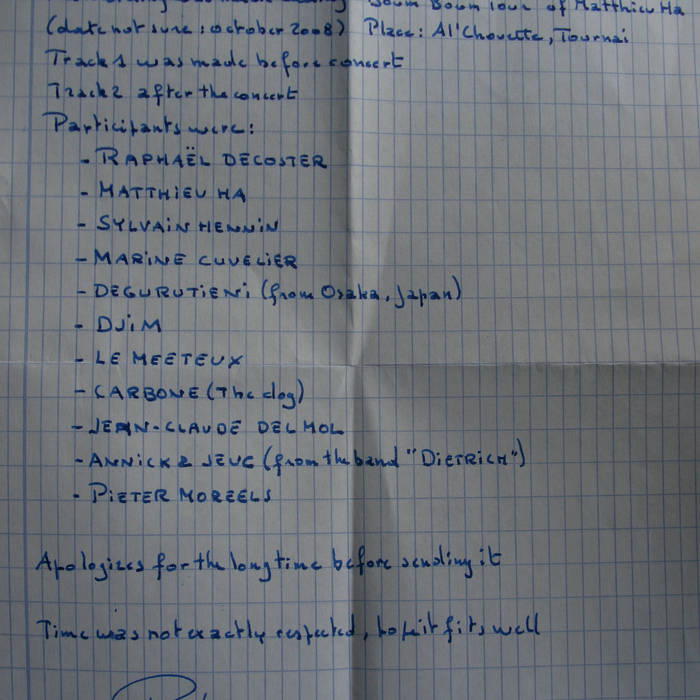 Boum Boum Tour of Matthieu Ha
(date not sure : october 2008) Place: Al'Chouette, Tournai
Track 1 was made before concert
Track 2 after the concert
Participants were:
- RAPHAËL DECOSTER
- MATTHIEU HA
- SYLVAIN HENNIN
- MARINE CUVELIER
- DEGURUTIENI (from Osaka, Japan)
- DJiM
- LE MEETEUX
- CARBONE (The dog)
- JEAN-CLAUDE DELMOL
- ANNICK & JEUC (from the band "DIETRICH")
- PIETER MOREELS
Apologizes for the long time before sending it
Time was not exactly respected, hope it fits well